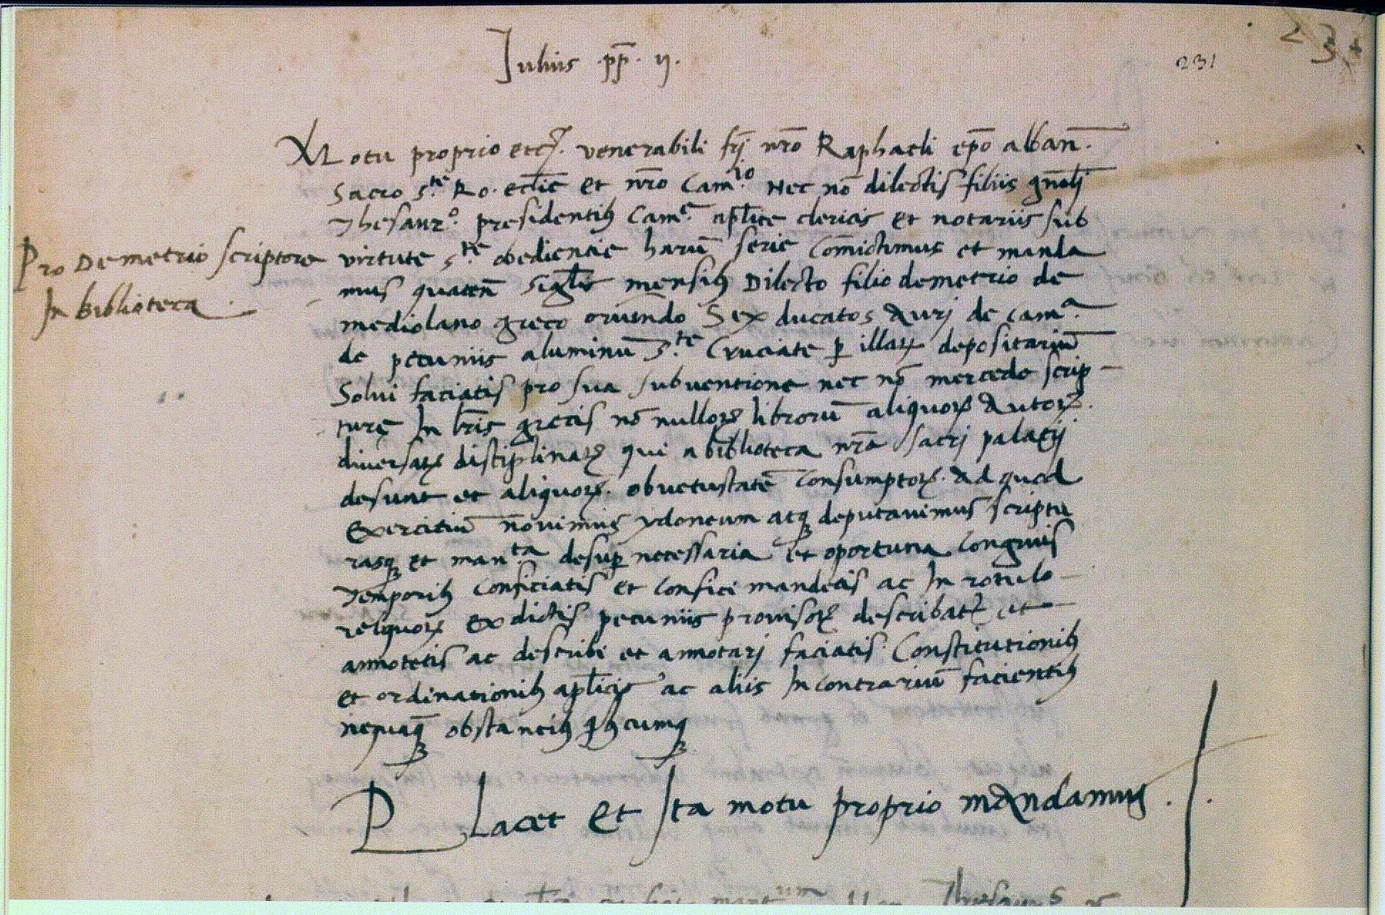 Iulius .pp. ij.
231
23
Motu proprio etc. venerabili frī nr̄o Raphaeli ep̄o albaneñ.
Sacro s.te Ro. ecl̄ie et nr̄o Cam.rio Nec nō dilectis filiis gn̄oli
Thesaur.o presidentib Cam.e apl̄ice clericis et notariis sub
virtute s.te obediencie harū serie Comictimus et manda
mus quateñ sigl̄is mensib Dilecto filio demetrio de
mediolano greco oriundo Sex ducatos Auri de Cam.a
de pecuniis aluminū s.te Cruciate p illaꝝ depositariū
Solui faciatis pro sua subuentione nec nō mercede scrip
ture In lr̄is grecis nō nulloꝝ librorū aliquoꝝ Autoꝝ.
diversaꝝ disciplinaꝝ qui a biblioteca nr̄a sacri palatij
desunt et aliquoꝝ. ob vetustatē Consumptoꝝ. Ad quod
Exercitiū novimus ydoneum atq deputavimus scriptu
rasq et man.ta desup necessaria et oportuna Congruis
Temporib conficiatis et confici mandetis ac In rotulo
reliquoꝝ ex dictis pecuniis provisoꝝ describatꝭ et
annotetis ac describi et annotari faciatis. Constitutionib
et ordinationib apl̄icis ac aliis In contrariū facientib
nequaq̄ obstantib qbcumq
Pro Demetrio scriptore
In biblioteca
Placet Et Ita motu proprio mandamus.